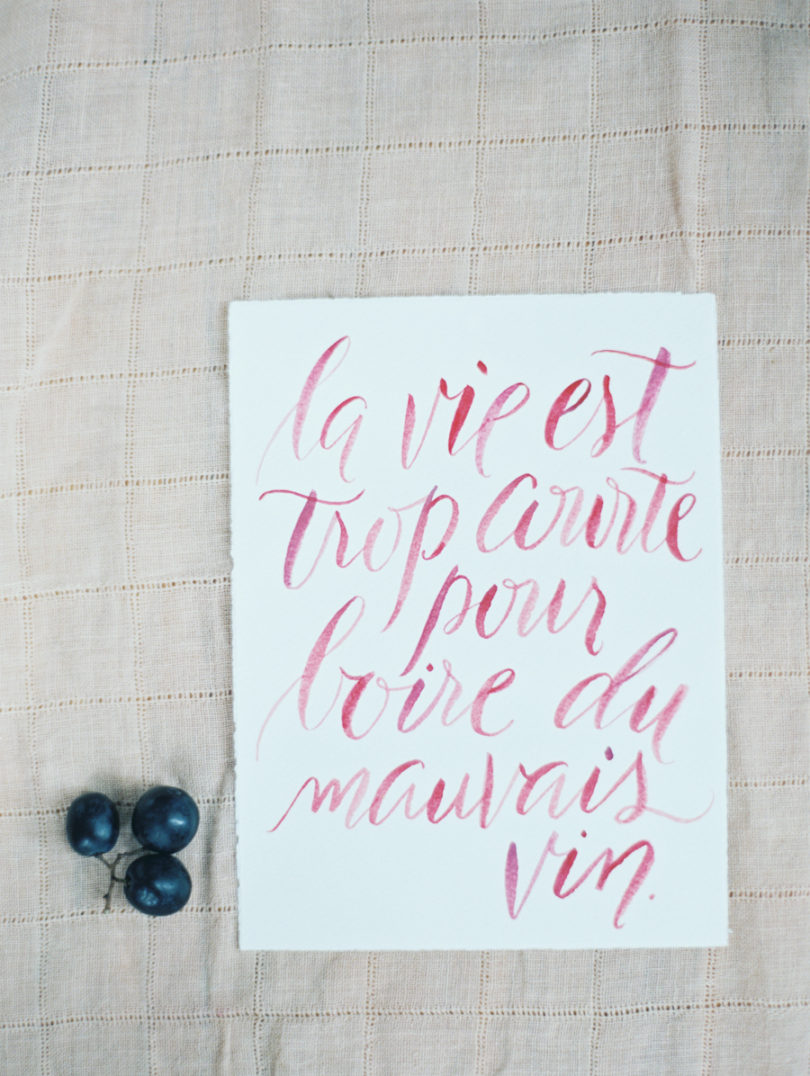 la vie est
trop courte
pour
boire du
mauvais
vin.